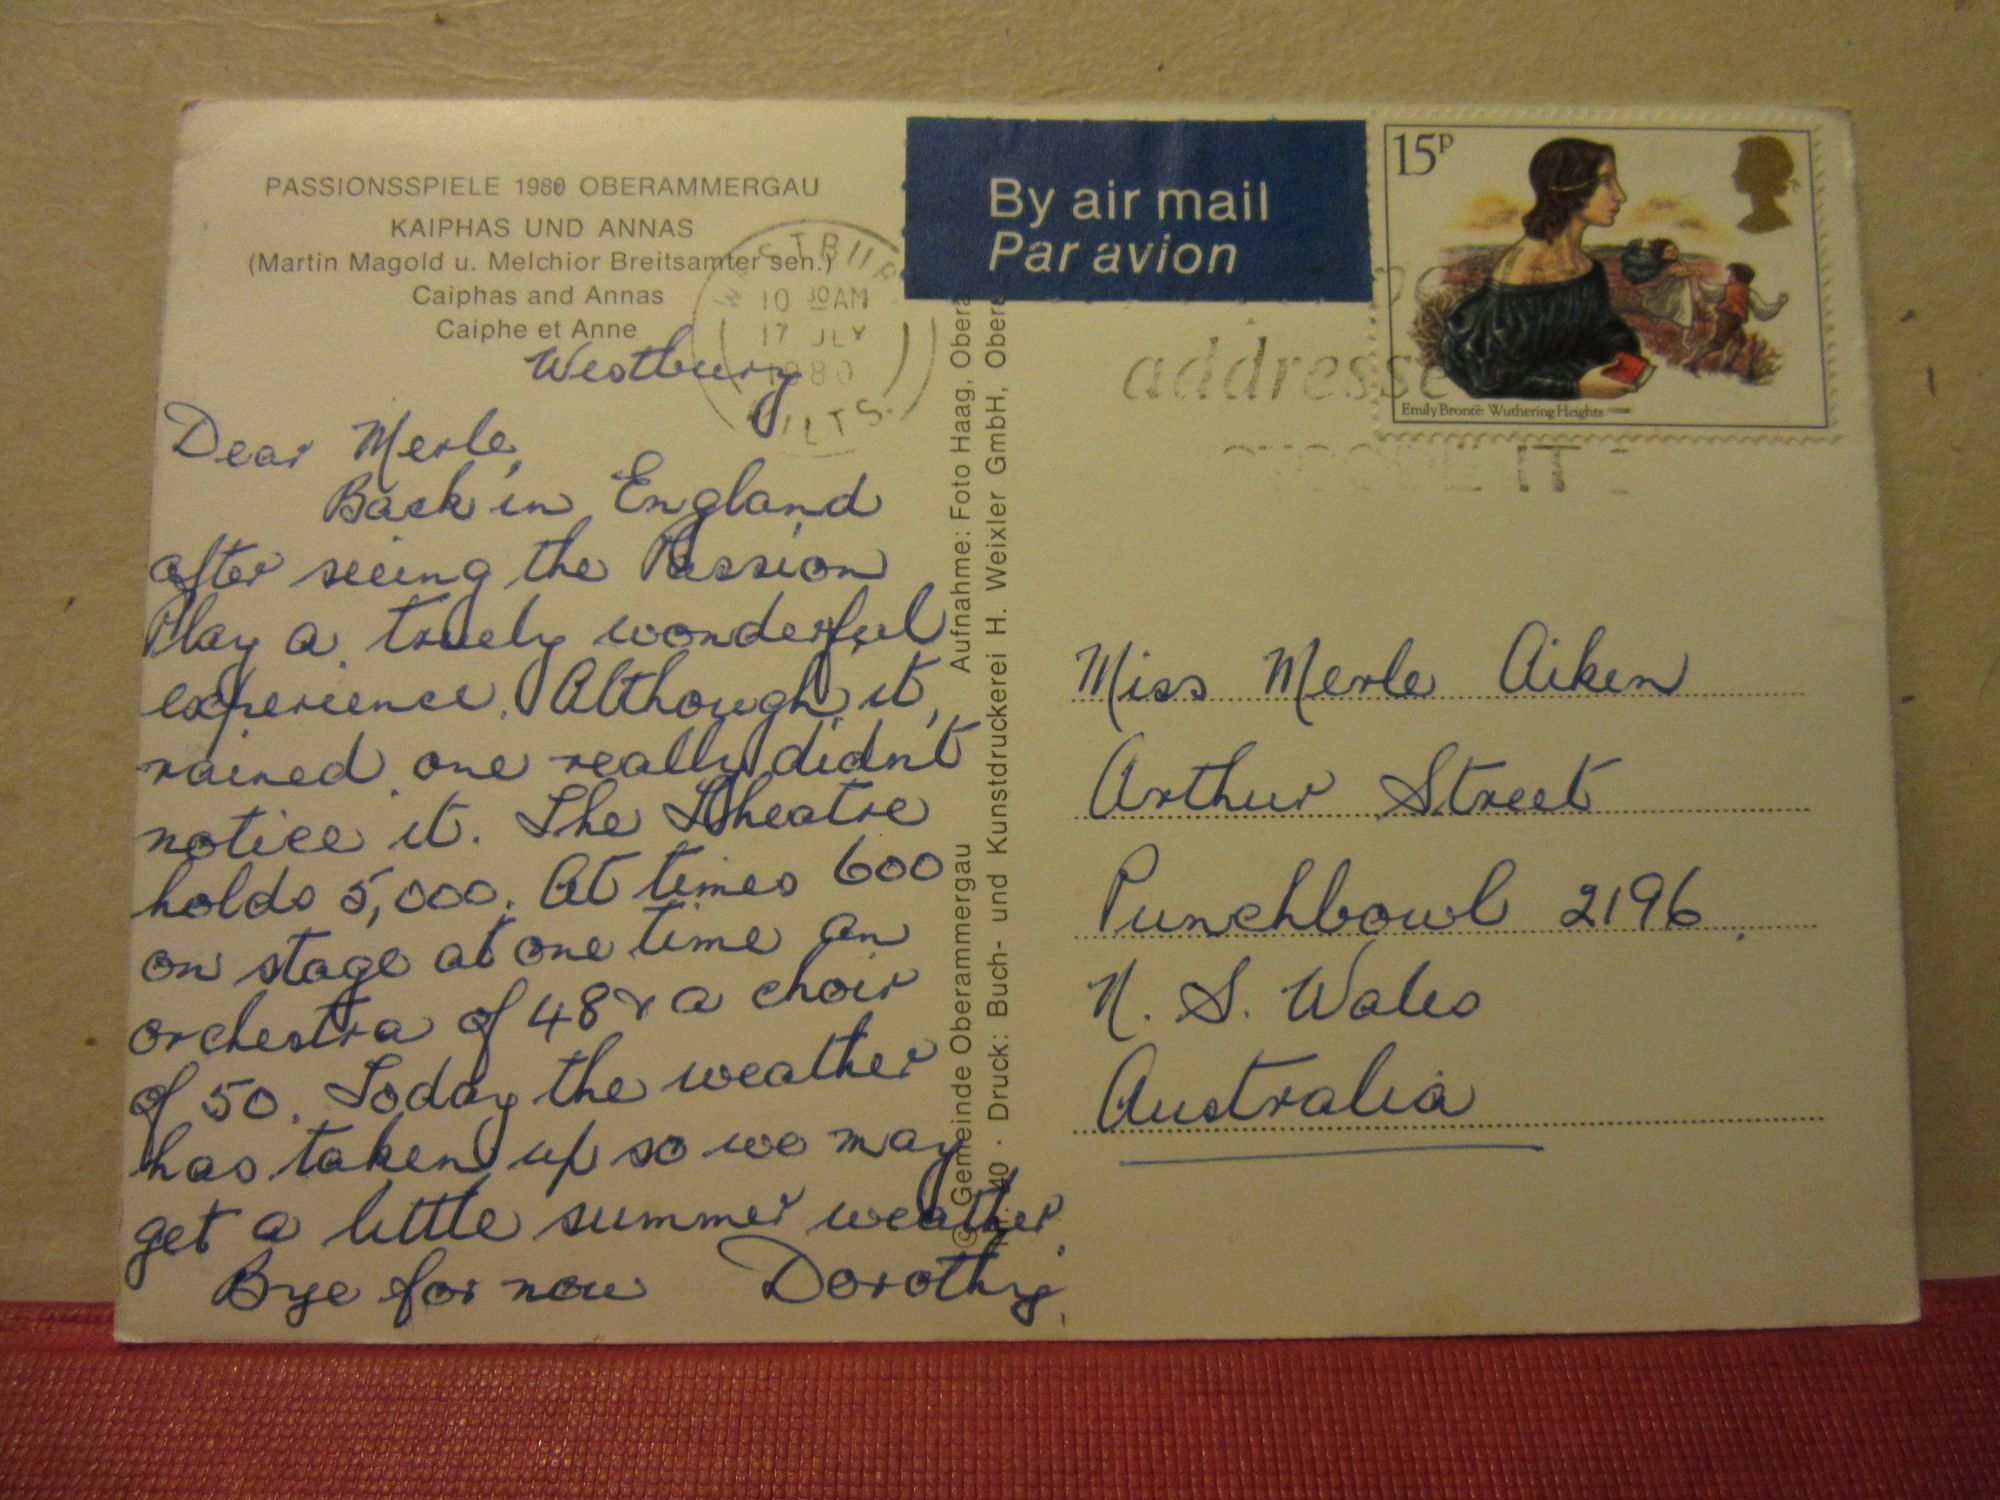 PASSIONSSPIELE 1980 OBERAMMERGAU
KAIPHAS UND ANNAS
(Martin Magold u. Melchior Breitsamter sen.)
Caiphas and Annas
Caiphe et Anne
10 30 AM
17 JLY
1980
WILTS.
By air mail
Par avion
15P
Emily Brontë: Wuthering Heights
addresse
IT
Westbury
Dear Merle,
Back in England
after seeing the Passion
Play a truely wonderful
experience. Although it
rained one really didn't
notice it. The Theatre
holds 5,000. At times 600
on stage at one time an
orchestra of 48 & a choir
of 50. Today the weather
has taken up so we may
get a little summer weather.
Bye for now Dorothy.
© Gemeinde Oberammergau Aufnahme: Foto Haag,
40 · Druck: Buch- und Kunstdruckerei H. Weixler GmbH,
Miss Merle Aiken
Arthur Street
Punchbowl 2196.
N. S. Wales
Australia